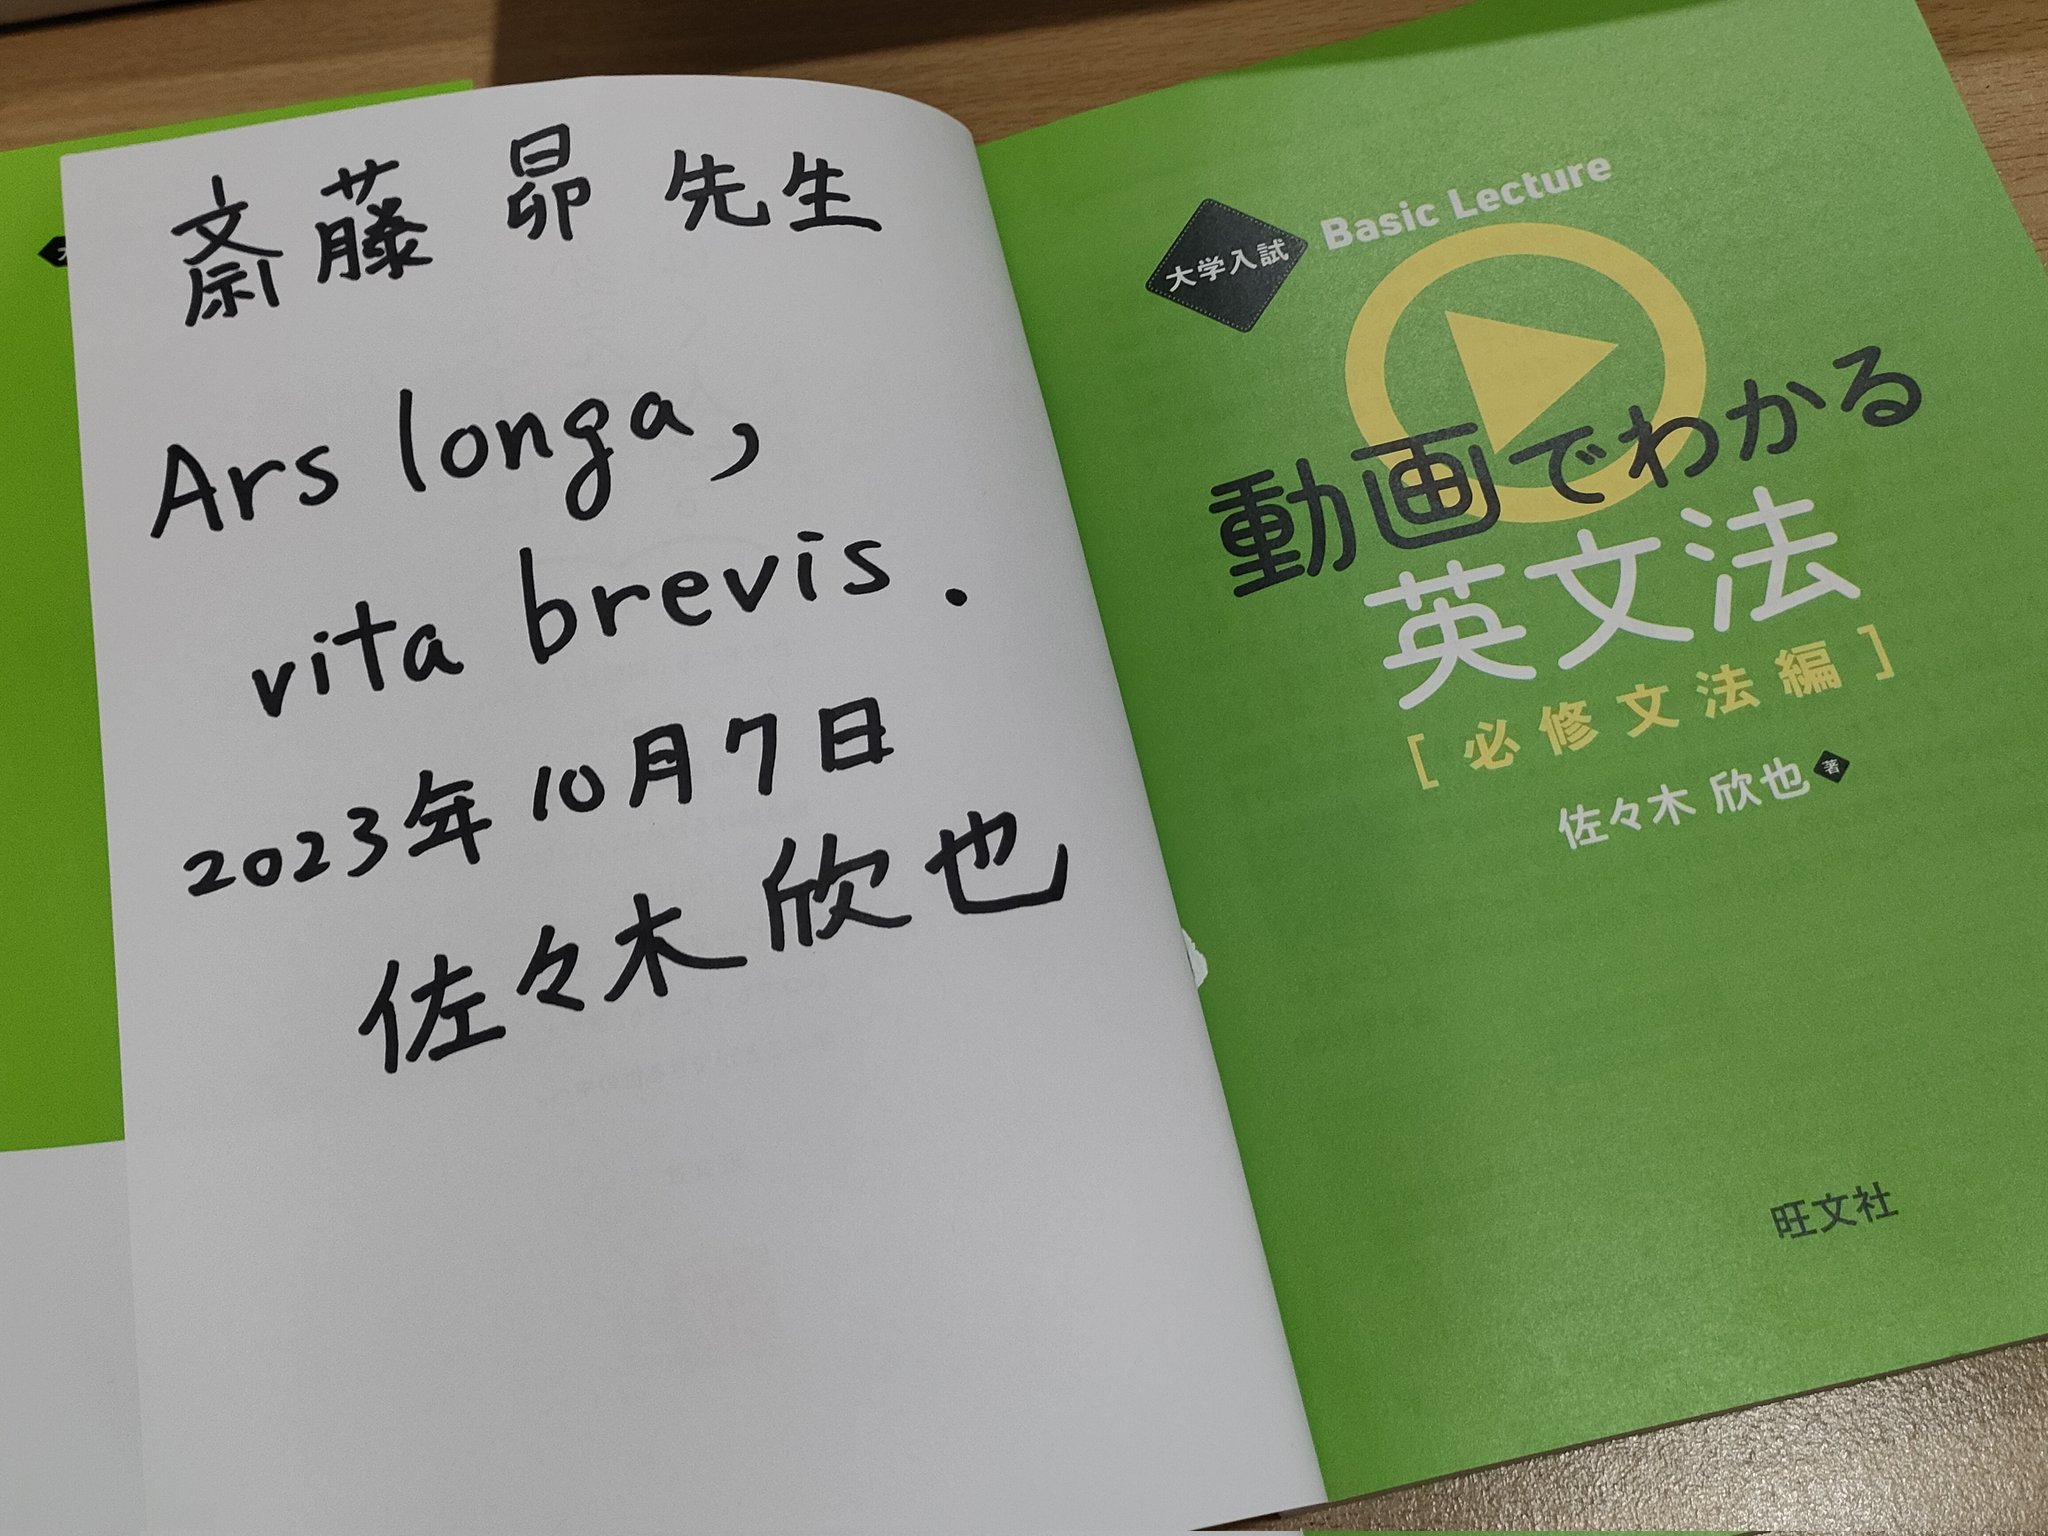 斎藤 昴 先生
Ars longa,
vita brevis.
2023年10月7日
佐々木 欣也
大学入試
Basic Lecture
動画でわかる
英文法
[必修文法編]
佐々木 欣也 著
旺文社